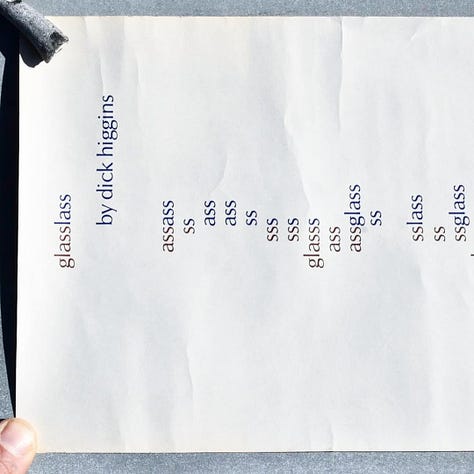 glasslass
by dick higgins
assass
ss
ass
ass
ss
sss
sss
glasss
ass
assglass
ss
sslass
ss
ssglass